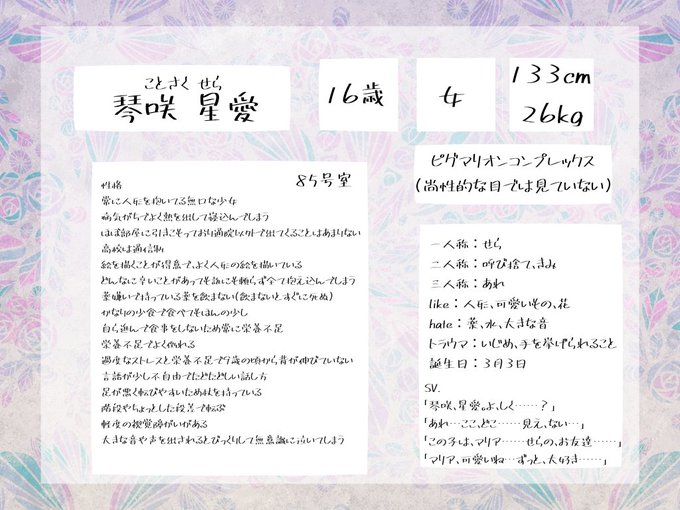 ことさく せら
琴咲 星愛
16歳
女
133cm
26kg
ピグマリオンコンプレックス
(尚性的な目では見ていない)
85号室
性格
常に人形を抱いてる無口な少女
病気がちでよく熱を出して寝込んでしまう
ほぼ部屋に引きこもっており通院以外で出てくることはあまりない
高校は通信制
絵を描くことが得意で、よく人形の絵を描いている
どんなに辛いことがあっても誰にも頼らず全て抱え込んでしまう
薬嫌いで持っている薬を飲まない(飲まないとすぐに死ぬ)
かなりの少食で食べてもほんの少し
自ら進んで食事をしないため常に栄養不足
栄養不足でよく倒れる
過度なストレスと栄養不足で9歳の頃から背が伸びていない
言語が少し不自由でたどたどしい話し方
足が悪く転びやすいため杖を持っている
階段やちょっとした段差で転ぶ
軽度の視覚障がいがある
大きな音や声を出されるとびっくりして無意識に泣いてしまう
一人称:せら
二人称:呼び捨て、きみ
三人称:あれ
like:人形、可愛いもの、花
hate:薬、水、大きな音
トラウマ:いじめ、手を挙げられること
誕生日:3月3日
SV.
「琴咲、星愛。よ、しく……?」
「あれ…ここ、どこ……見え、ない…」
「この子は、マリア……せらの、お友達……」
「マリア、可愛いね…ずっと、大好き……」